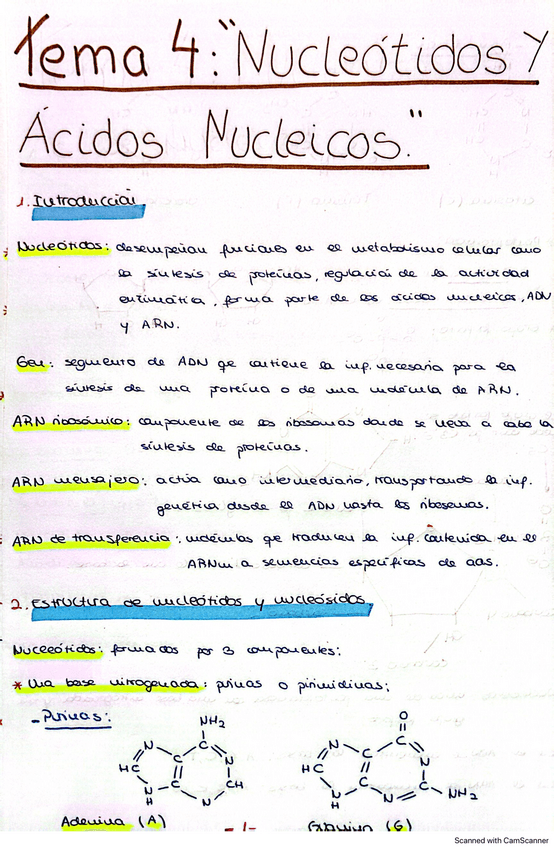 Tema 4: "Nucleótidos Y
Ácidos Nucleicos."
1. Introducción
Nucleótidos: desempeñan funciones en el metabolismo celular como
la síntesis de proteínas, regulación de la actividad
enzimática, forma parte de los ácidos nucleicos, ADN
y ARN.
Gen: segmento de ADN qe contiene la inf. necesaria para la
síntesis de una proteína o de una molécula de ARN.
ARN ribosómico: componente de los ribosomas donde se lleva a cabo la
síntesis de proteínas.
ARN mensajero: actúa como intermediario, transportando la inf.
genética desde el ADN hasta los ribosomas.
ARN de transferencia: moléculas qe traducen la inf. contenida en el
ARNm a secuencias específicas de aas.
2. Estructura de nucleótidos y nucleósidos
Nucleótidos: formados por 3 componentes:
* Una base nitrogenada: purinas o pirimidinas;
- Purinas:
NH2
O
N C C N HC C N CH N H
N C C N HC C N N C NH2 H
Adenina (A)
- 1 -
Guanina (G)
Scanned with CamScanner